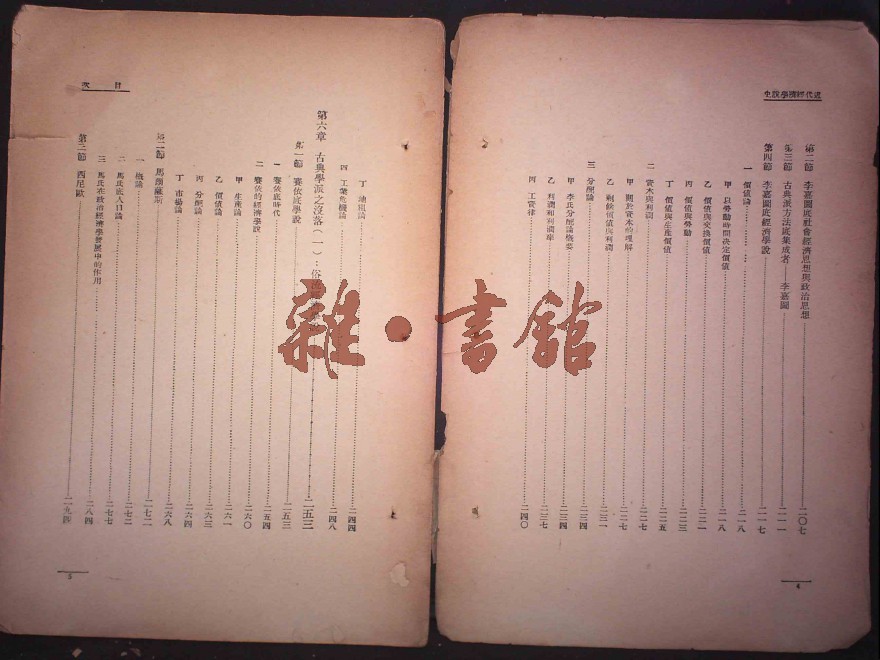 近代經濟學說史
第二節 李嘉圖底社會經濟思想與政治思想 二〇七
第三節 古典派方法底集成者——李嘉圖 二一一
第四節 李嘉圖底經濟學說 二一七
一 價值論 二一八
甲 以勞動時間決定價值 二一八
乙 價值與交換價值 二二一
丙 價值與勞動 二二三
丁 價值與生產價值 二二五
二 資本與利潤 二二七
甲 關於資本的理解 二二七
乙 剩餘價值與利潤 二三一
三 分配論 二三四
甲 李氏分配論概要 二三四
乙 利潤和利潤率 二三七
丙 工資律 二四〇
4
目次
丁 地租論 二四四
四 工業危機論 二四八
第六章 古典學派之沒落(一):俗流 二五三
第一節 賽依底學說 二五三
一 賽依底時代 二五四
二 賽依的經濟學說 二六〇
甲 生產論 二六一
乙 價值論 二六三
丙 分配論 二六四
丁 市場論 二六八
第二節 馬爾薩斯 二七二
一 概論 二七二
二 馬氏底人口論 二七七
三 馬氏在政治經濟學發展中的作用 二八四
第三節 西尼歐 二九四
5
雜·書館